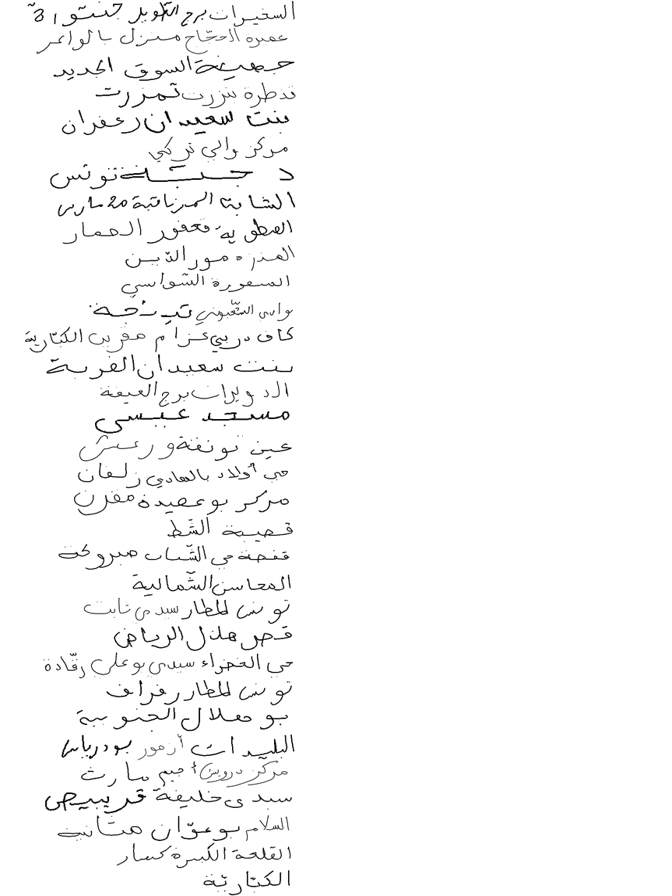 السغيرات برج الطويل خنتور
عميرة الحجاج منزل بالواعر
السوق الجديد
قنطرة بنزرت تمزرت
بنت سعيدان زعفران
مركز والي تركي
تونس
الشابة المرناقية 20 مارس
قعفور الحمار
نور الدين
السعورة الشواسي
كاف دربي عزام مقرن الكبّاريّة
بنت سعيدان القرية
الدويرات برج العيفة
مسجد عيسى
عين نونفة ورغش
حي أولاد بالهادي زلفان
مركز بوعصيدة مقرن
قصيبة الشط
قفصة حي الشباب مبروكة
المحاسن الشمالية
تونس المطار سيدي ثابت
قصر هلال الرياض
حي الخضراء سيدي بوعلي رقّادة
تونس المطار رفراف
بوهلال الجنوبية
البليدات أزمور بودرياس
مركز دروين أميم مارث
سيدي خليفة قريبيص
السلام بوعوّان
القلعة الكبيرة كسار
الكبّاريّة